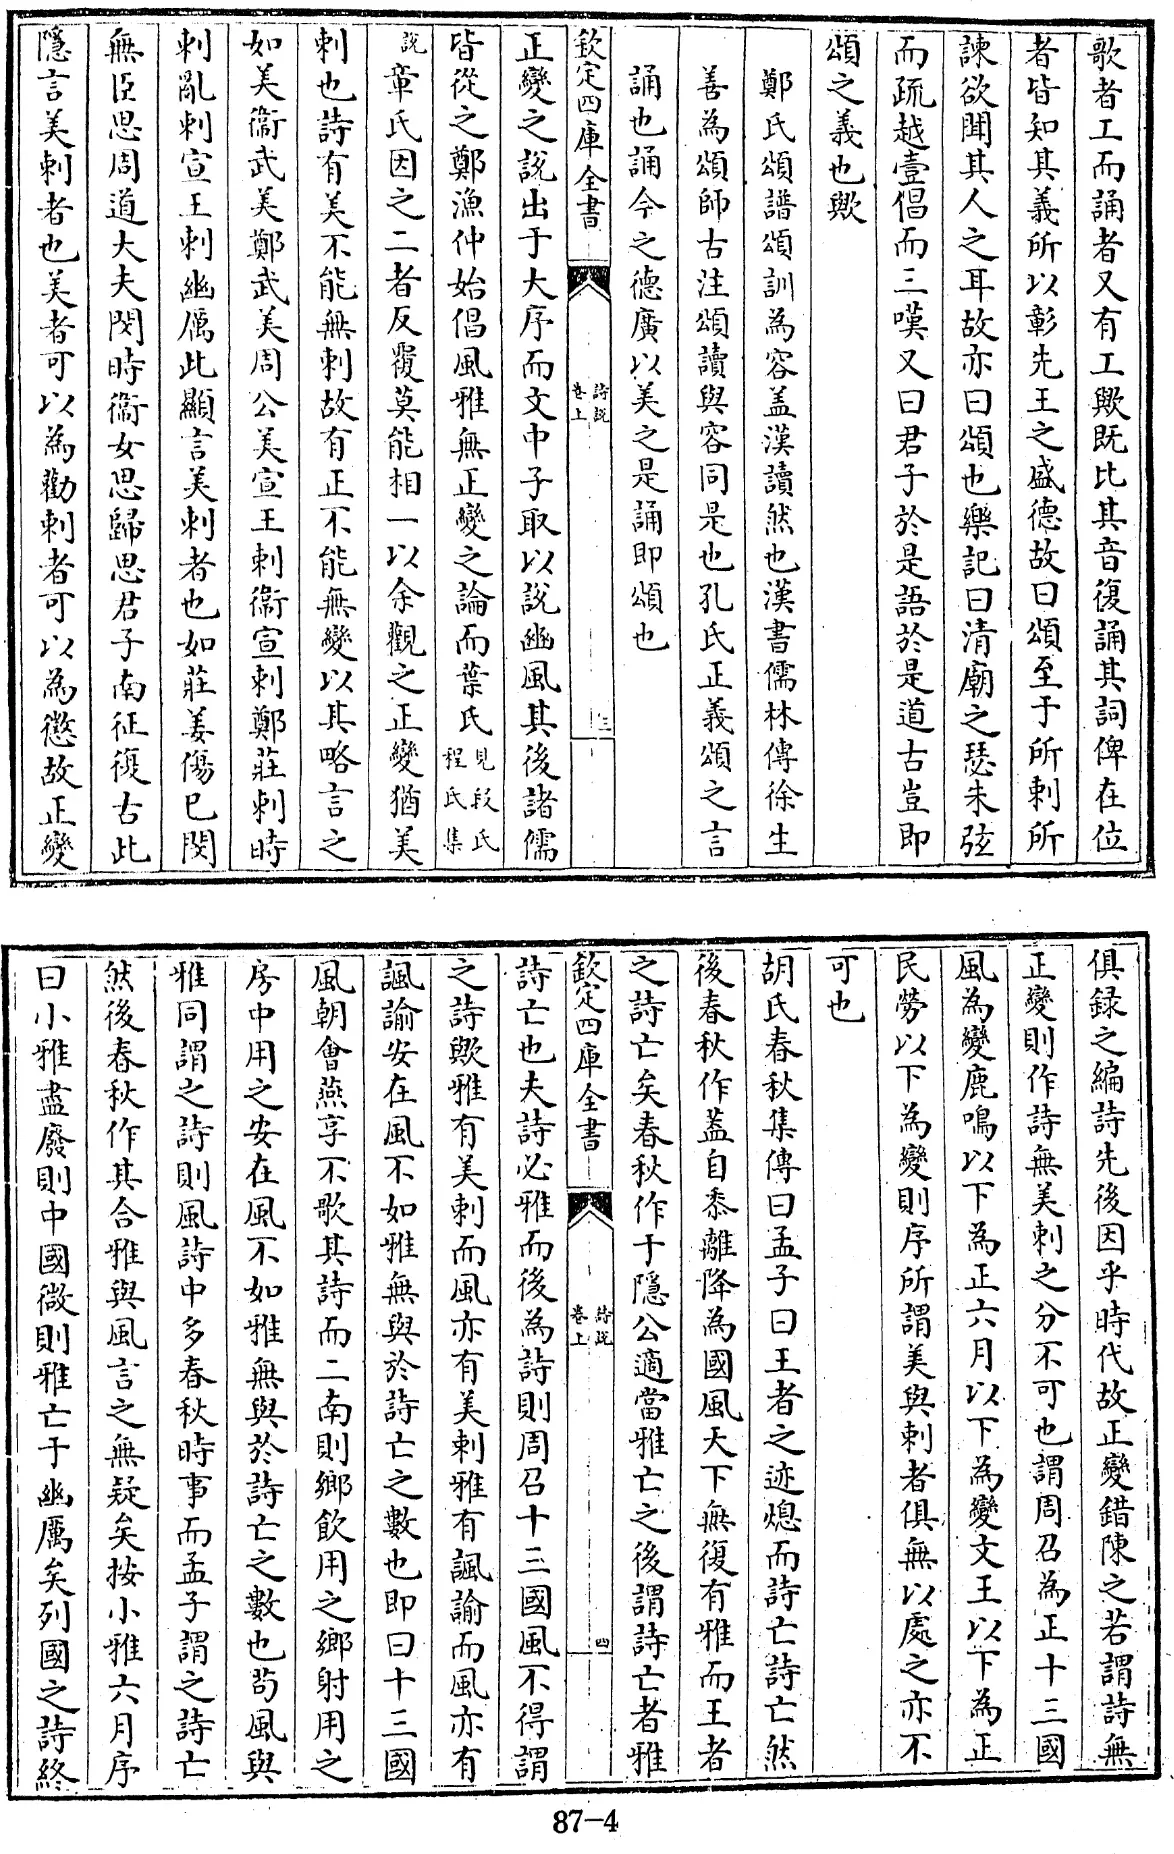 歌者工而誦者又有工歟既比其音復誦其詞俾在位
者皆知其義所以彰先王之盛德故曰頌至于所刺所
諫欲聞其人之耳故亦曰頌也樂記曰清廟之瑟朱弦
而疏越壹倡而三嘆又曰君子於是語於是道古豈即
頌之義也歟
鄭氏頌譜頌訓為容盖漢讀然也漢書儒林傳徐生
善為頌師古注頌讀與容同是也孔氏正義頌之言
誦也誦今之德廣以美之是誦即頌也
欽定四庫全書
詩説
卷上
三
正變之説出于大序而文中子取以説豳風其後諸儒
皆從之鄭漁仲始倡風雅無正變之論而葉氏見段氏
程氏集
説章氏因之二者反覆莫能相一以余觀之正變猶美
刺也詩有美不能無刺故有正不能無變以其略言之
如美衞武美鄭武美周公美宣王刺衞宣刺鄭莊刺時
刺亂刺宣王刺幽厲此顯言美刺者也如莊姜傷已閔
無臣思周道大夫閔時衞女思歸思君子南征復古此
隱言美刺者也美者可以為勸刺者可以為懲故正變
俱録之編詩先後因乎時代故正變錯陳之若謂詩無
正變則作詩無美刺之分不可也謂周召為正十三國
風為變鹿鳴以下為正六月以下為變文王以下為正
民勞以下為變則序所謂美與刺者俱無以處之亦不
可也
胡氏春秋集傳曰孟子曰王者之迹熄而詩亡詩亡然
後春秋作蓋自黍離降為國風天下無復有雅而王者
之詩亡矣春秋作于隱公適當雅亡之後謂詩亡者雅
欽定四庫全書
詩説
卷上
四
詩亡也夫詩必雅而後為詩則周召十三國風不得謂
之詩歟雅有美刺而風亦有美刺雅有諷諭而風亦有
諷諭安在風不如雅無與於詩亡之數也即曰十三國
風朝會燕享不歌其詩而二南則鄉飲用之鄉射用之
房中用之安在風不如雅無與於詩亡之數也茍風與
雅同謂之詩則風詩中多春秋時事而孟子謂之詩亡
然後春秋作其合雅與風言之無疑矣按小雅六月序
曰小雅盡廢則中國微則雅亡于幽厲矣列國之詩終
87-4